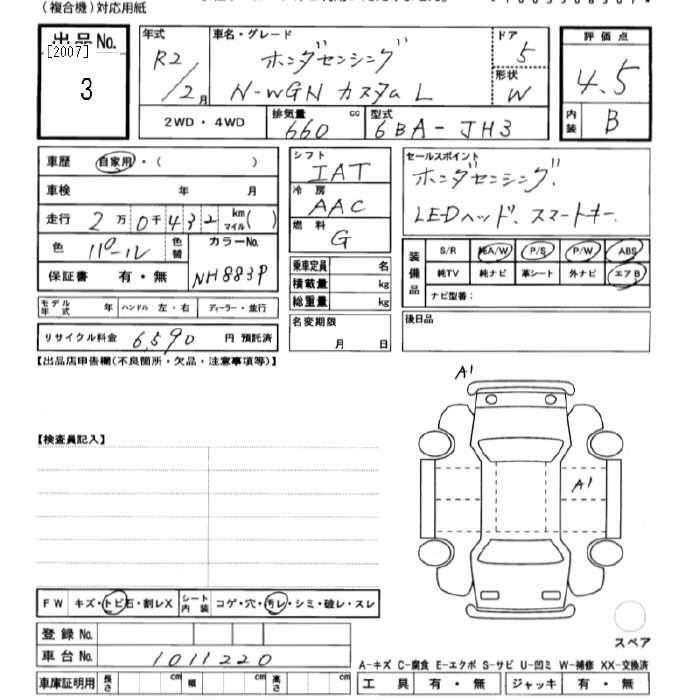 (複合機)対応用紙
出品No. 年式 車名・グレード ドア 評価点
[2007] R2 ホンダセンシング 5
3 /2月 N-WGN カスタム L 形状 W 4.5
2WD・4WD 排気量 660 cc 型式 6BA-JH3 内装 B
車歴 自家用・( ) シフト IAT セールスポイント
車検 年 月 冷房 AAC ホンダセンシング.
走行 2万0千432 km マイル( ) 燃料 G LEDヘッド、スマートキー.
色 パール 色替 カラーNo. NH883P 装備品 S/R 純A/W P/S P/W ABS
保証書 有・無 乗車定員 名 純TV 純ナビ 革シート 外ナビ エアB
積載量 kg ナビ型番:
モデル年式 年 ハンドル 左・右 ディーラー・並行 総重量 kg
リサイクル料金 6,590 円 預託済 名変期限 月 日 後日品
【出品店申告欄(不良箇所・欠品・注意事項等)】
A1
【検査員記入】
A1
FW キズ・トビ石・割レX シート内装 コゲ・穴・汚レ・シミ・破レ・スレ
登録No.
スペア
車台No. 1011220
A-キズ C-腐食 E-エクボ S-サビ U-凹ミ W-補修 XX-交換済
車庫証明用 長さ cm 幅 cm 高さ cm 工具 有・無 ジャッキ 有・無